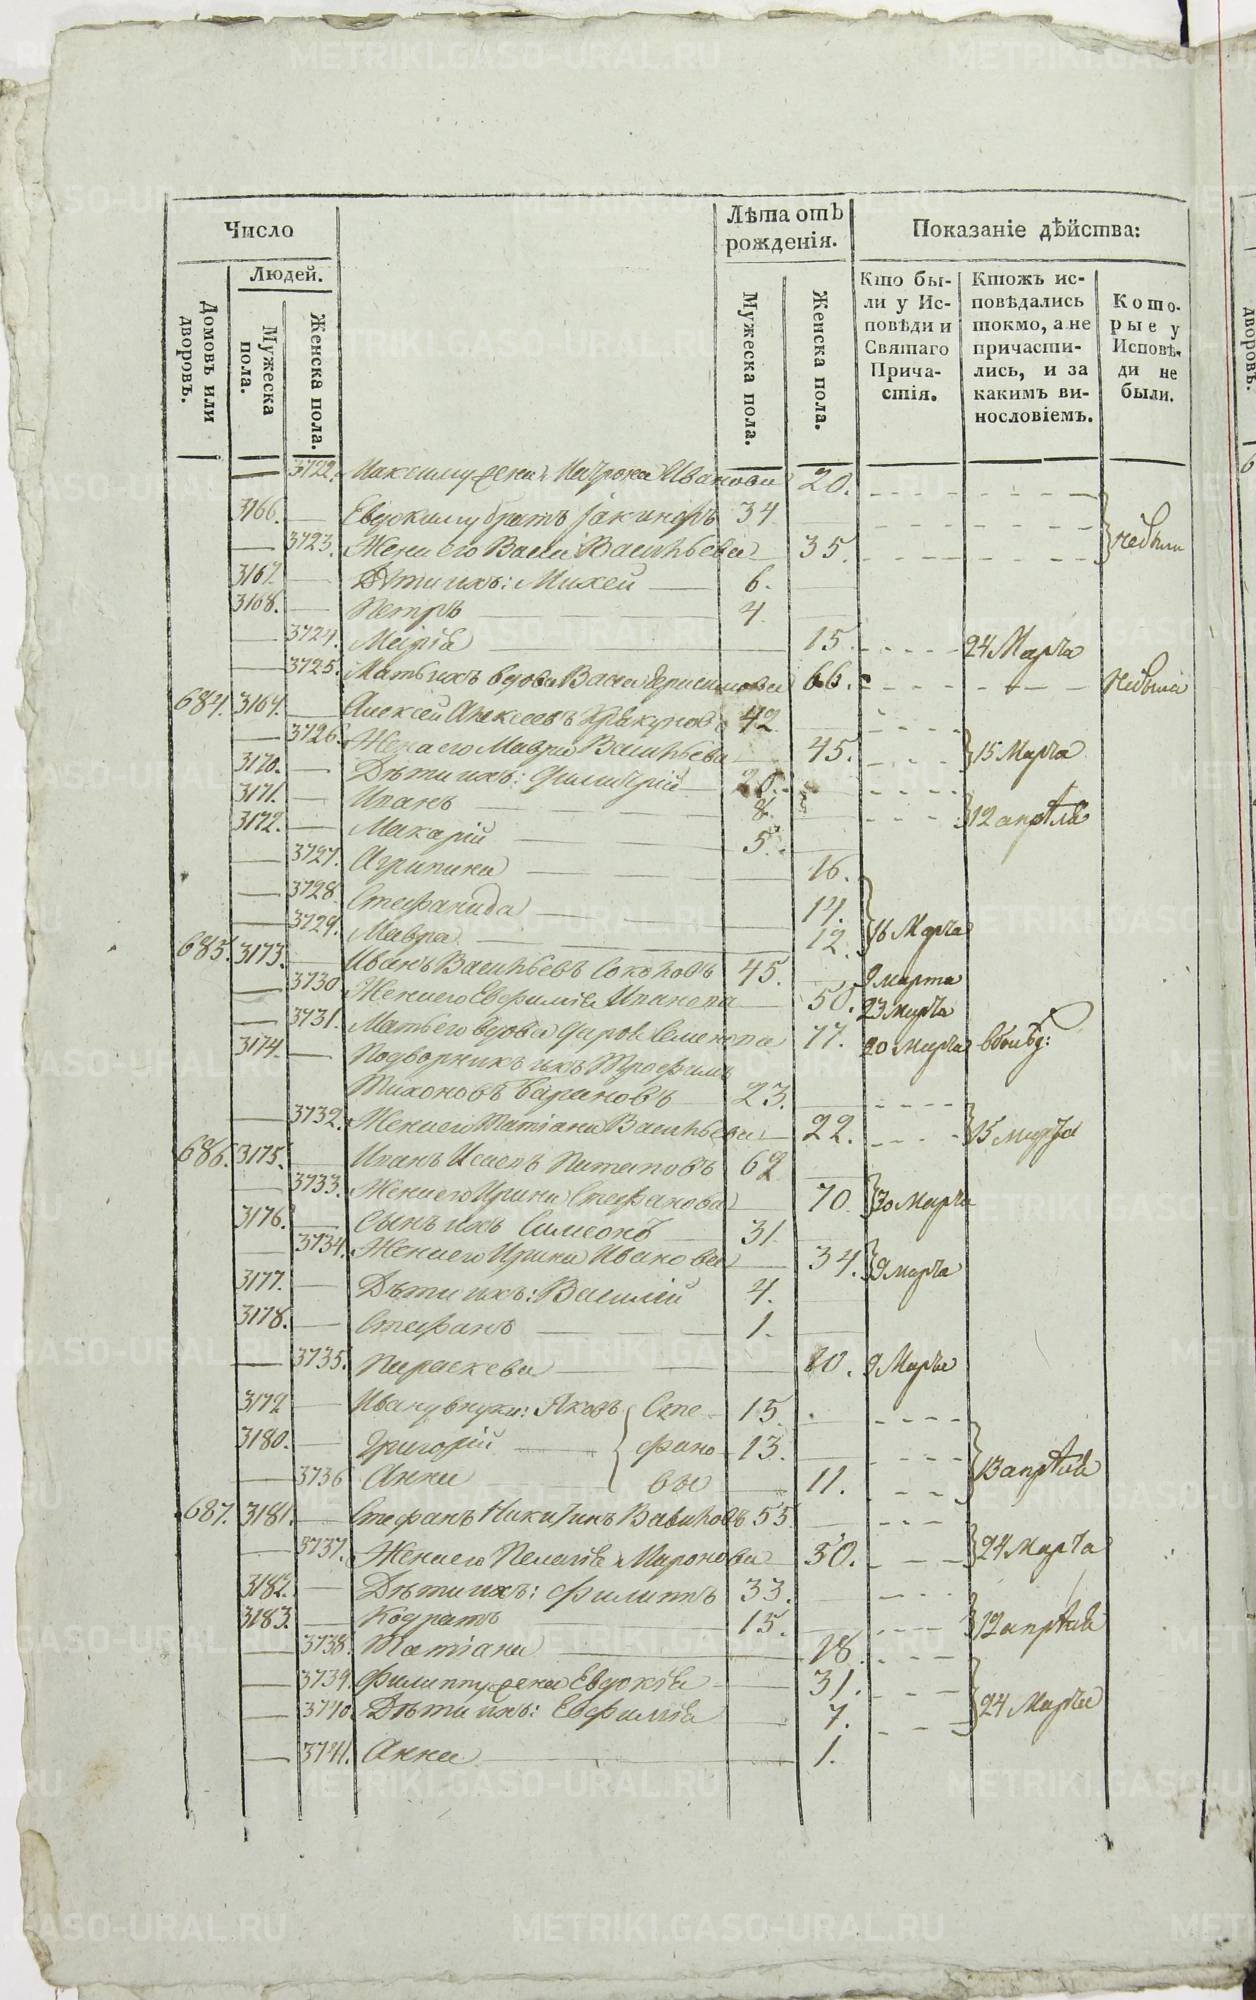 Число
Людей.
Домовъ или дворовъ.
Мужеска пола.
Женска пола.
Лѣта отъ рожденія.
Мужеска пола.
Женска пола.
Показаніе дѣйства:
Кто были у Исповѣди и Святаго Причастія.
Ктожъ исповѣдались токмо, а не причастились, и за какимъ винословіемъ.
Которые у Исповѣди не были.
— 3722. Максиму жена Матрона Иванова 20.
3166. — Евдокиму братъ Іакинфъ 34
— 3723. Жена его Васса Васильева 35. небыли
3167. — Дѣти ихъ: Михей 6.
3168. — Петръ 4
— 3724. Марія 15. 24 Марта
— 3725. Мать ихъ вдова Васса Герасимова 66. небыла
684. 3169. — Алексей Алексеевъ 42
— 3726. Жена его Мавра Васильева 45. 15 Марта
3170. — Дѣти ихъ: Димитрій 20.
3171. — Иванъ 8. 12 апрѣля
3172. — Макарій 5.
— 3727. Агрипина 16.
— 3728. Стефанида 14. 16 Марта
— 3729. Мавра 12.
685. 3173. — Иванъ Васильевъ Соколовъ 45. 9 марта
— 3730 Жена его Евфимія Иванова 50. 23 марта
— 3731. Мать его вдова Семенова 77. 20 марта
3174. — Подворникъ ихъ Трофимъ
Тихоновъ Бариновъ 23.
— 3732. Жена его Татіана Васильева 22. 15 марта
686. 3175. — Иванъ Исаевъ Потаповъ 62
— 3733. Жена его Ирина Стефанова 70 20 Марта
3176. — Сынъ ихъ Симеонъ 31
— 3734. Жена его Ирина Иванова 34. 9 марта
3177. — Дѣти ихъ: Василій 4.
3178. — Стефанъ 1.
— 3735. Параскева 10. 9 Марта
3179 — Ивану внуки: Яковъ Сте 15.
3180. — Григорій фано 13. 13 апрѣля
— 3736 Анна вы 11.
687. 3181. — Стефанъ Никитинъ Вавиловъ 55
— 3737. Жена его Пелагія Миронова 50. 24 Марта
3182. — Дѣти ихъ: Филиппъ 33.
3183. — Кодратъ 15. 12 апрѣля
— 3738. Татіана 18
— 3739. Филиппу жена Евдокія 31.
— 3740 Дѣти ихъ: Евфимія 7. 24 Марта
— 3741. Анна 1.
METRIKI.GASO-URAL.RU